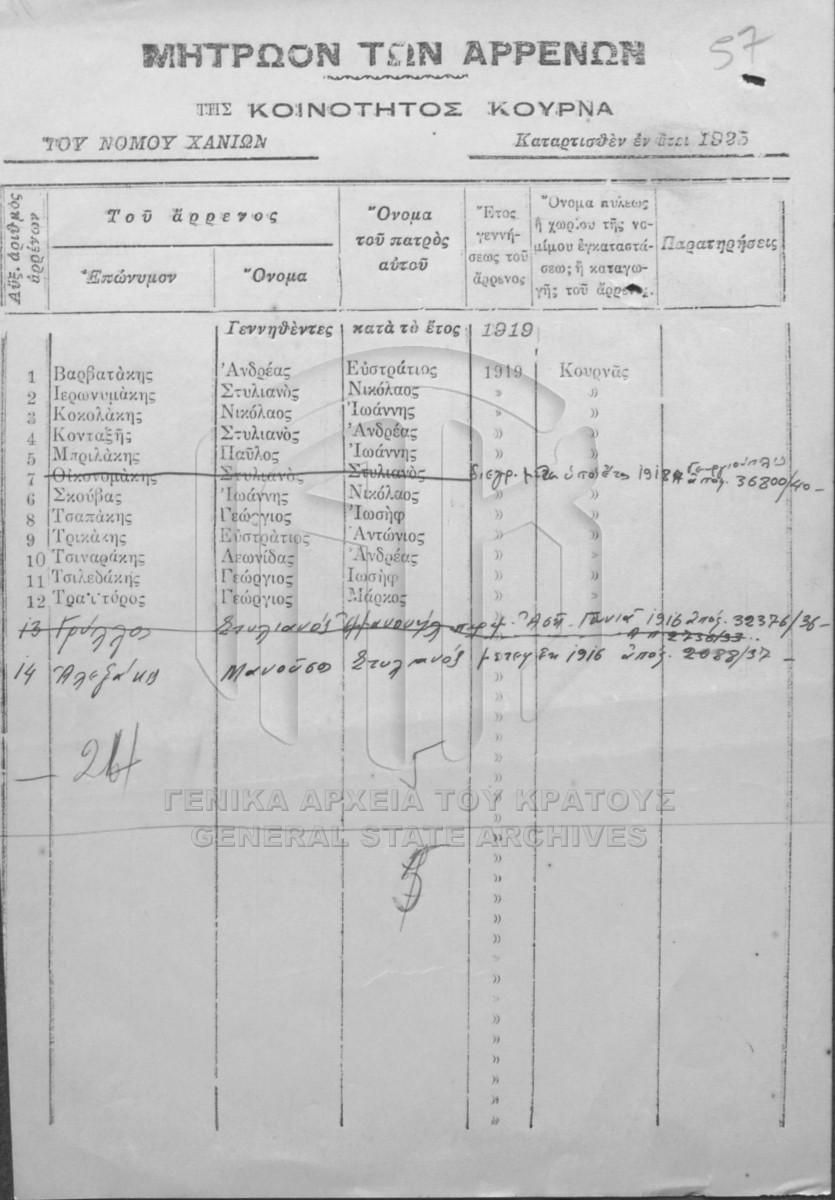 57
ΜΗΤΡΩΟΝ ΤΩΝ ΑΡΡΕΝΩΝ
ΤΗΣ ΚΟΙΝΟΤΗΤΟΣ ΚΟΥΡΝΑ
ΤΟΥ ΝΟΜΟΥ ΧΑΝΙΩΝ Καταρτισθὲν ἐν ἔτει 1925
Αὔξ. ἀριθμὸς ἀρρένων
Τοῦ ἄρρενος
Ἐπώνυμον
Ὄνομα
Ὄνομα
τοῦ πατρὸς
αὐτοῦ
Ἔτος
γεννή-
σεως τοῦ
ἄρρενος
Ὄνομα πόλεως
ἢ χωρίου τῆς νο-
μίμου ἐγκαταστά-
σεως ἢ καταγω-
γῆς τοῦ ἄρρενος.
Παρατηρήσεις
Γεννηθέντες κατὰ τὸ ἔτος 1919
1 Βαρβατάκης Ἀνδρέας Εὐστράτιος 1919 Κουρνᾶς
2 Ιερωνυμάκης Στυλιανὸς Νικόλαος » »
3 Κοκολάκης Νικόλαος Ἰωάννης » »
4 Κονταξῆς Στυλιανὸς Ἀνδρέας » »
5 Μπριλάκης Παῦλος Ἰωάννης » »
7 Οἰκονομάκης Στυλιανὸς Στυλιανὸς 1918 36800/40
6 Σκούβας Ἰωάννης Νικόλαος » »
8 Τσαπάκης Γεώργιος Ἰωσὴφ » »
9 Τρικάκης Εὐστράτιος Ἀντώνιος » »
10 Τσιναράκης Λεωνίδας Ἀνδρέας » »
11 Τσιλεδάκης Γεώργιος Ιωσὴφ » »
12 Τραϊτόρος Γεώργιος Μάρκος » »
13 Γρύλλος Στυλιανός Ἐμμανουήλ 1916 ἀπόφ. 32376/36
2736/33
14 Μανοῦσο Στυλιανός μετεγ 1916 ἀποφ. 2088/37
24
5
ΓΕΝΙΚΑ ΑΡΧΕΙΑ ΤΟΥ ΚΡΑΤΟΥΣ
GENERAL STATE ARCHIVES